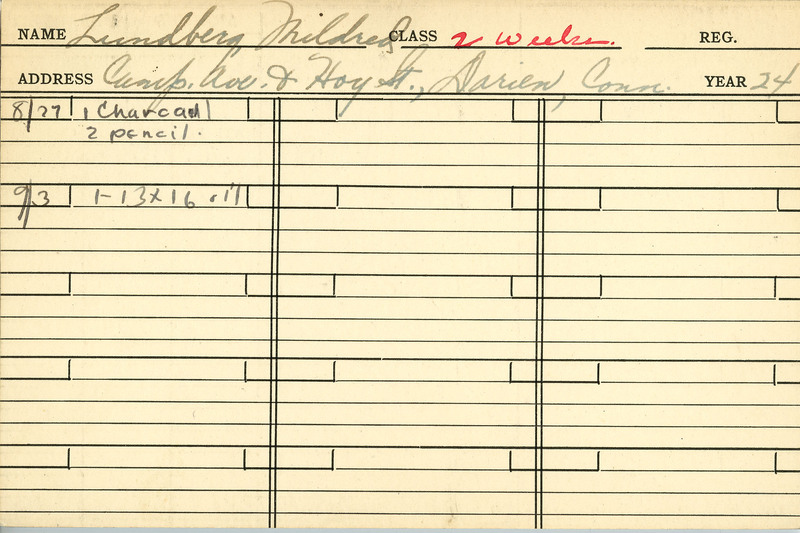 NAME Lundberg, Mildred CLASS 2 weeks. REG.
ADDRESS Camp. Ave. & Hoy St., Darien, Conn. YEAR 24
8/27 1 Charcoal
2 pencil.
9/3 1-13x16 oil